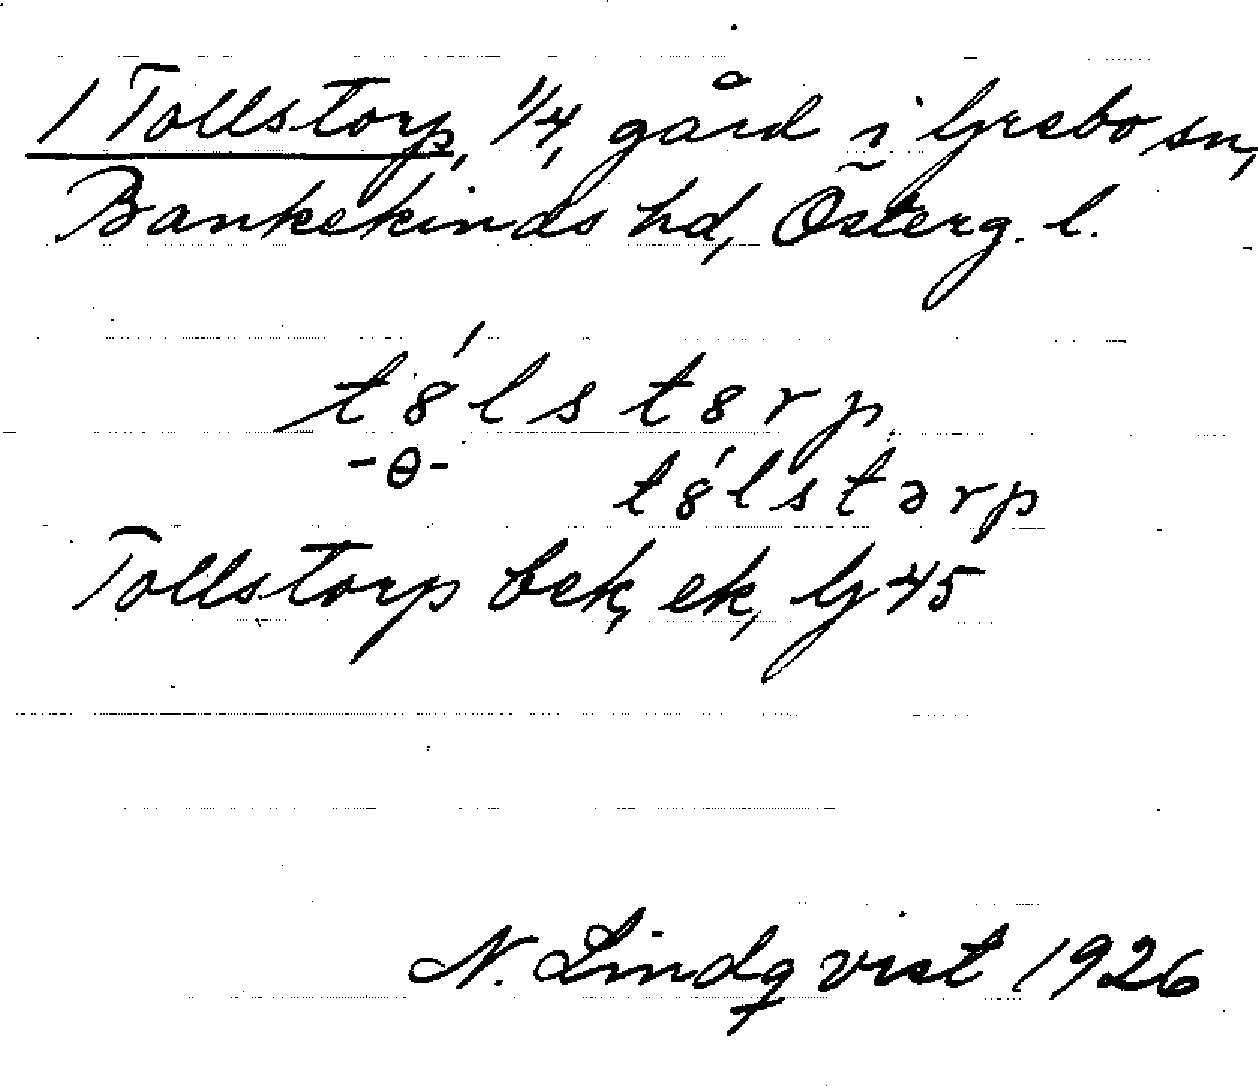 1 Tollstorp, 1/4, gård i Yxebo sn,
Bankekinds hd, Österg. l.
tȣ́lstȣrp
-θ-
tȣ́lstərp
Tollstorp bek, ek, lj 45
N. Lindqvist 1926